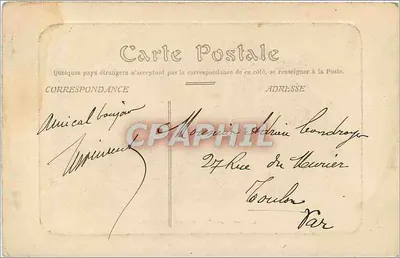 Carte Postale
Quelques pays étrangers n'acceptant pas la correspondance de ce coté, se renseigner à la Poste.
CORRESPONDANCE
ADRESSE
Amical bonjour
Monsieur Adrien
27 Rue du Murier
Toulon
Var
CPAPHIL